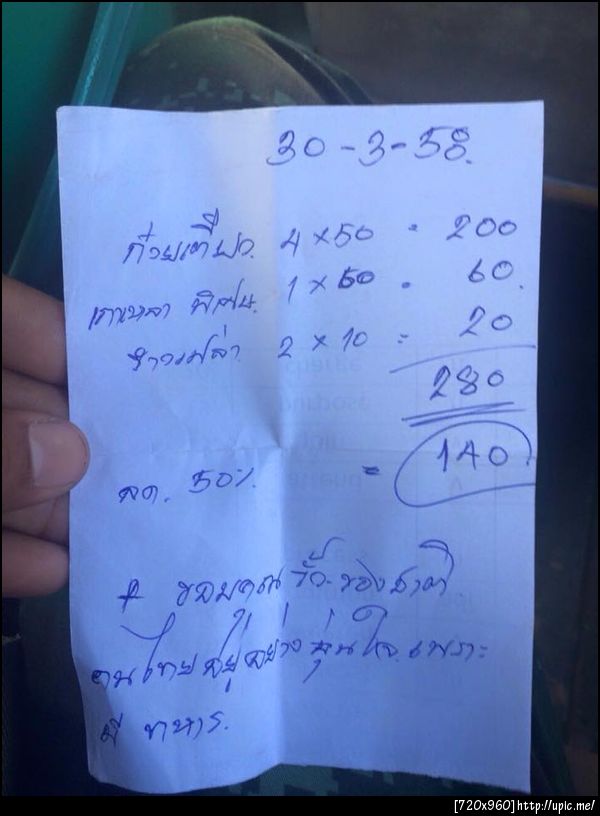 30-3-58.
ก๋วยเตี๋ยว. 4 x 50 = 200
เกาเหลา พิเศษ. 1 x 60 = 60.
ข้าวเปล่า 2 x 10 = 20
280
ลด. 50%. = 140.
* ขอบคุณ รั้วของชาติ
คนไทยอยู่อย่างอุ่นใจ เพราะ
มี ทหาร.
[720x960]http://upic.me/